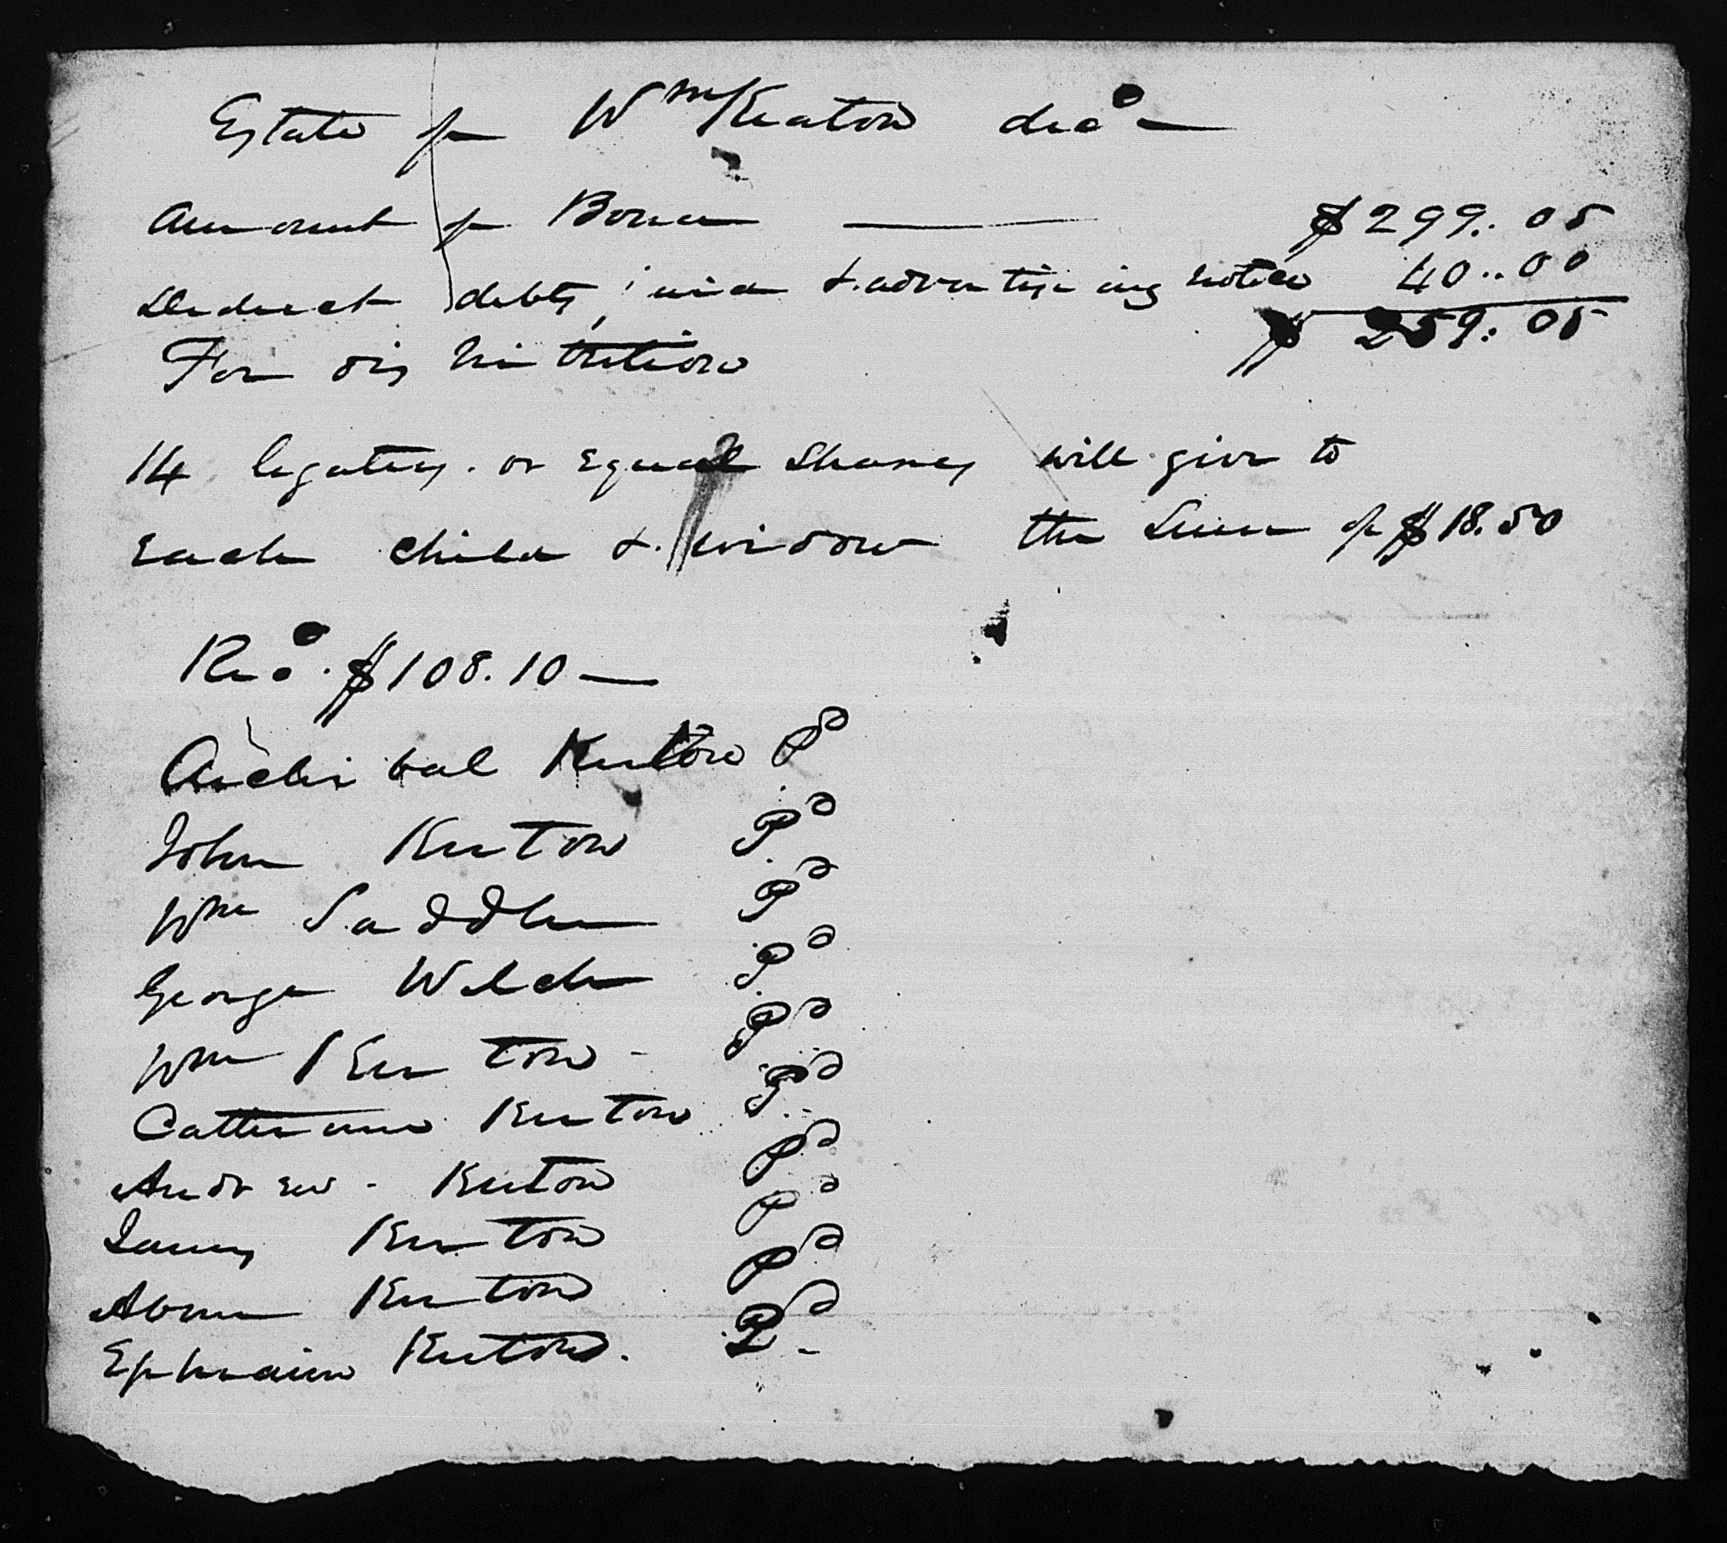 Estate of Wm Keaton decd
Amount of Bond $299..05
Deduct debts, paid & advertising notice 40..00
For distribution $259:05
14 legatees or Equal Shares will give to
Each child & widow the Sum of $18.50
Recd. $108.10
Archibal Keeton Pd
John Keeton Pd
Wm Saddler Pd
George Welch Pd
Wm Keeton - Pd
Catherine Keeton Pd
Andrew - Keeton Pd
James Keeton Pd
Abner Keeton Pd
Ephraim Keeton. Pd